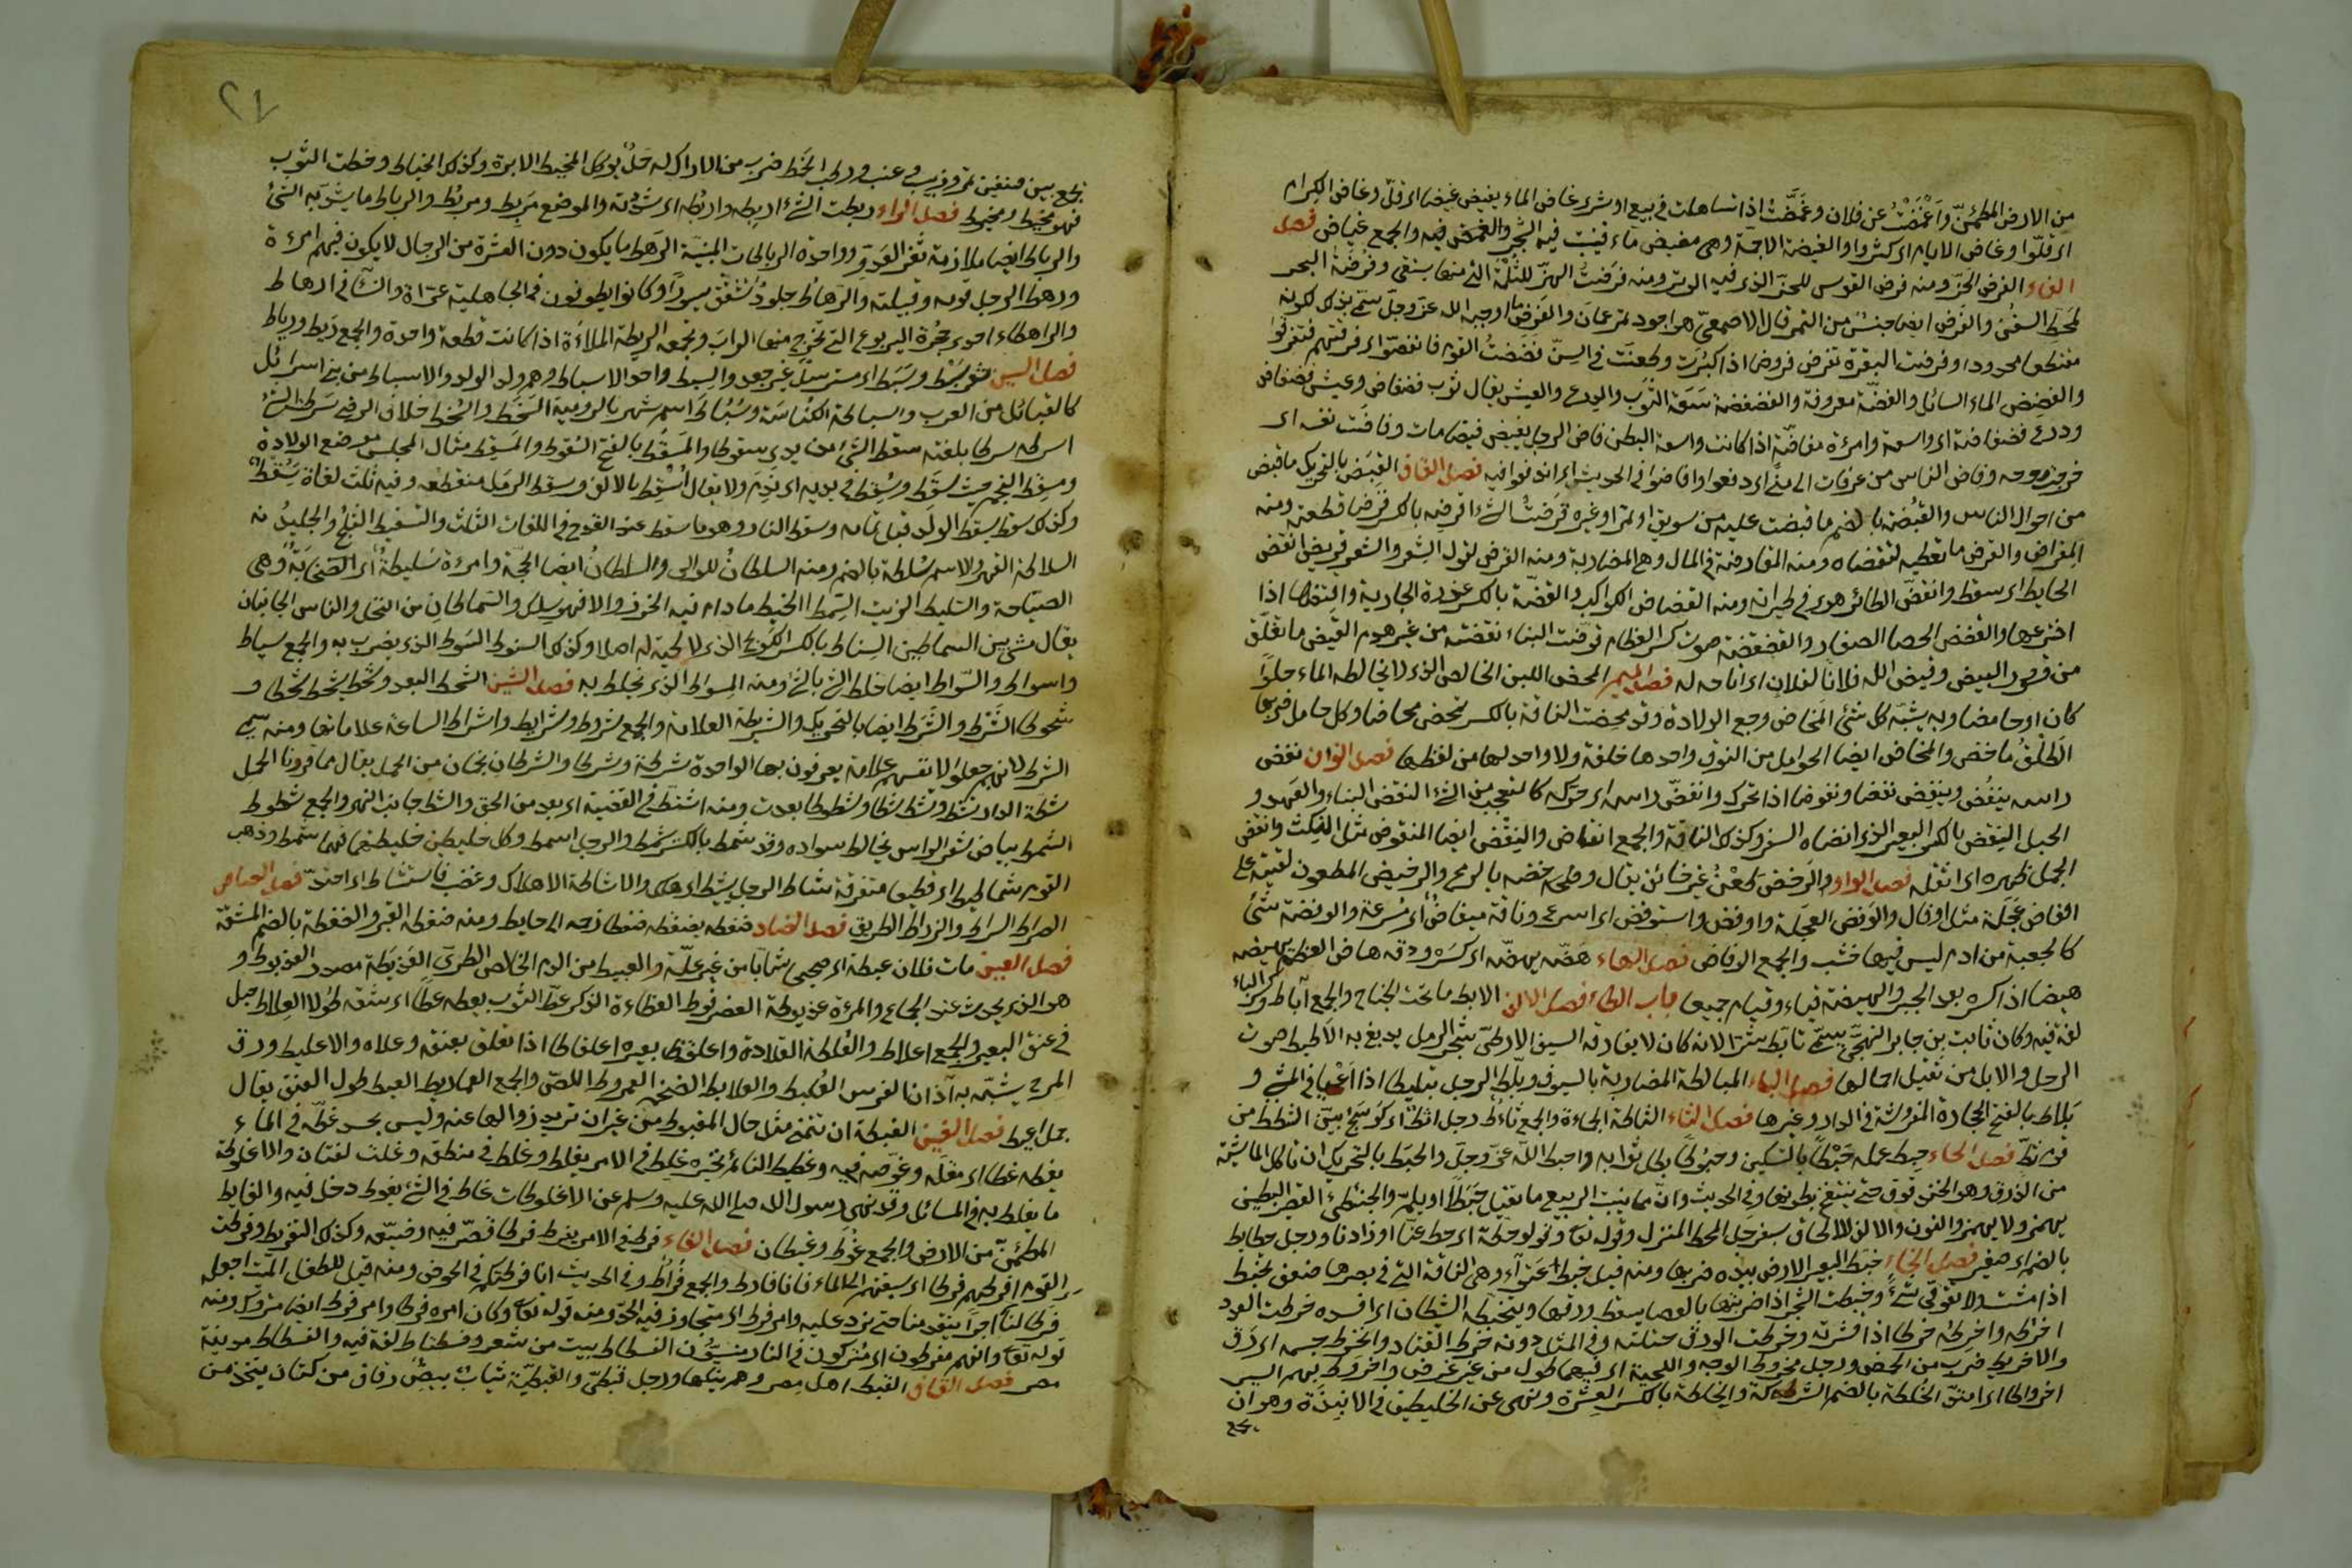 من الارض المطمئن واغمضت عن فلان وغمضت اذا تساهلت في بيع او شرى غاض الماء يغيض غيضا اى قل وغاض الكرام
اى قلوا وغاض الايام اى كثروا والغيضة الاجمة وهى مغيض ماء فينبت فيه الشجر والغمض فيه والجمع غياض فصل
الفاء الفرض الحز ومنه فرض القوس للحز الذى فيه الوتر ومنه فرضت النهر للثلمة التى منها يستقى وفرضة البحر
لمحط السفن والفرض ايضا جنس من التمر قال الاصمعى هو اجود تمر عمان والفرض ما اوجبه الله عز وجل سمى بذلك لكونه
منقطعا محدودا وفرضت البقرة تفرض فروضا اذا كبرت وطعنت في السن فضضت القوم فانفضوا اى فرقتهم فتفرقوا
والفضض الماء السائل والفضة معروفة والفضفضة سعة الثوب والدرع والعيش يقال ثوب فضفاض وعيش فضفاض
ودرع فضفاضة اى واسعة وامرءة مفاضة اذا كانت واسعة البطن فاض الرجل يفيض فيضا مات وفاضت نفسه اى
خرجت روحه وفاض الناس من عرفات الى منى اى دفعوا وافاضوا في الحديث اى اندفعوا فيه فصل القاف القبض بالتحريك ما قبض
من اموال الناس والقبضة بالضم ما قبضت عليه من سويق او تمر او غيره قرضت الشئ اقرضه بالكسر قرضا قطعته ومنه
المقراض والقرض ما تعطيه لتقضاه ومنه المقارضة في المال وهى المضاربة ومنه القرض لقول الشعر والشعر قريض انقض
الحايط اى سقط وانقض الطائر هوى في طيرانه ومنه انقضاض الكواكب والقضة بالكسر عذرة الجارية واقتضها اذا
افترعها والقضض الحصا الصغار والقضقضة صوت كسر العظام قوضت البناء نقضته من غير هدم القيض ما تفلق
من قشور البيض وقيض الله فلانا لفلان اى اتاحه له فصل الميم المحض اللبن الخالص الذى لا يخالطه الماء حلوا
كان او حامضا وبه يشبه كل شئ المخاض وجع الولادة وقد مخضت الناقة بالكسر تمخض مخاضا وكل حامل ضربها
الطلق ماخض والمخاض ايضا الحوامل من النوق واحدها خلفة ولا واحد لها من لفظها فصل النون نغض
راسه ينغض وينغض نغضا ونغوضا اذا تحرك وانغض راسه اى حركه كالمتعجب من الشئ النقض البناء والعهد و
الحبل النقض بالكسر البعير الذى انضاه السفر وكذلك الناقة والجمع انقاض والنقض ايضا المنقوض مثل النكث وانقض
الحمل ظهره اى اثقله فصل الواو والرخض طعن غير خائن يقال وخضه بالرمح والوخيض المطعون لقيته على
اوفاض عجلة مثل اوفاز والوفض العجلة واوفض واستوفض اى اسرع وناقة ميفاض اى مسرعة والوفضة شئ
كالجعبة من ادم ليس فيها خشب والجمع الوفاض فصل الهاء هضه يهضه اى كسره ودقه هاض العظم يهيضه
هيضا اذا كسره بعد الجبر والهيضة قياء وقيام جميعا باب الطاء فصل الالف الابط ما تحت الجناح والجمع آباط وكسر الباء
لغة فيه وكان ثابت بن جابر الفهمى يسمى تابط شرا لانه كان لا يفارقه السيف الارطى شجر الرمل يدبغ به الاطيط صوت
الرحل والابل من ثقيل احمالها فصل الباء المبالطة المضاربة بالسيوف وبلط الرجل تبليطا اذا اعيا في المشى و
بلاط بالفتح الحجارة المفروشة في الدار وغيرها فصل الثاء الثاطة الحماءة والجمع ثاط رجل اثط اى كوسج بين الثطط من
قوم ثط فصل الحاء حبط عمله حبطا بالتسكين وحبوطا بطل ثوابه واحبطه الله عز وجل والحبط بالتحريك ان تاكل الماشية
من الذرق وهو الحندقوق حتى ينتفخ بطونها وفي الحديث وان مما ينبت الربيع ما يقتل حبطا او يلم والحبنطى القصير البطين
يهمز ولا يهمز والنون والالف للالحاق بسفرجل المحط المنزل وقوله تعالى وقولوا حطة اى حط عنا اوزارنا ورجل حطايط
بالضم اى صغير فصل الخاء خبط البعير الارض بيده ضربها ومنه قيل خبط عشواء وهى الناقة التى في بصرها ضعف تخبط
اذا مشت لا تتوقى شئا وخبطت الشجر اذا ضربتها بالعصا يسقط ورقها وتخبطه الشيطان اى افسده خرطت العود
اخرطه واخرطه خرطا اذا قشرته وخرطت الورق حتته وفي المثل دونه خرط القتاد وانخرط جسمه اى دق
والاخريط ضرب من الحمض ورجل مخروط الوجه واللحية اى فيهما طول من غير عرض واخروط بهم السير
اخرواطا اى امتد الخلطة بالضم الشركة والخلطة بالكسر العشرة ونهى عن الخليطين في الانبذة وهو ان
يجمع
٢٧
يجمع بين صنفين تمر وزبيب وعنب ورطب الخمط ضرب من الاراك له حمل يوكل المخيط الابرة وكذلك الخياط وخطت الثوب
فهو مخيط ومخيوط فصل الراء ربطت الشئ اربطه واربطه اى شددته والموضع مربط ومربط والرباط ما يشد به الشئ
والرباط ايضا ملازمة ثغر العدو وواحدة الرباطات المبنية الرهط ما يكون دون العشرة من الرجال لا يكون فيهم امرءة
ورهط الرجل قومه وقبيلته والرهاط جلود تشقق سيورا وكانوا يطوفون في الجاهلية عراة والنساء في ارهاط
والراهطاء احدى جحرة اليربوع التى تخرج منها التراب وتجمعه الريطة الملاءة اذا كانت قطعة واحدة والجمع ريط ورياط
فصل السين شعر سبط وسبط اى مسترسل غير جعد والسبط واحد الاسباط وهم ولد الولد والاسباط من بنى اسرائل
كالقبائل من العرب والسباطة الكناسة وسباط اسم شهر بالرومية السخط والسخط خلاف الرضى سرطت الشئ
اسرطه سرطا بلعته سقط الشئ من يدى سقوطا والمسقط بالفتح السقوط والمسقط مثال المجلس موضع الولادة
ومسقط النجم حيث سقط وسقط في يديه اى ندم ولا يقال اسقط بالالف وسقط الرمل منقطعه وفيه ثلث لغات سقط
وكذلك سقط سقط الولد قبل تمامه وسقط النار وهو ما سقط عند القدح في اللغات الثلث والسقيط الثلج والجليد
السلاطة القهر والاسم سلطة بالضم ومنه السلطان للوالى والسلطان ايضا الحجة وامرءة سليطة اى الصخابة وهى
الصياحة والسليط الزيت السمط الخيط ما دام فيه الخرز والا فهو سلك والسماطان من النخل والناس الجانبان
يقال مشى بين السماطين السناط بالكسر الكوسج الذى لا لحية له اصلا وكذلك السنوط السوط الذى يضرب به والجمع سياط
واسواط والسواط ايضا خلط الشئ بالشئ ومنه المسواط الذى يخلط به فصل الشين الشحط البعد وشحط يشحط شحطا و
شحوطا الشرط والشرط ايضا بالتحريك والشريطة العلامة والجمع شروط وشرايط واشراط الساعة علاماتها ومنه سمى
الشرط لانهم جعلوا لانفسهم علامة يعرفون بها الواحدة شرطة وشرطى والشرطان نجمان من الحمل يقال لهما قرونا الحمل
شطت الدار تشط وتشط شطا وشطوطا بعدت ومنه اشتط في القضية اى بعد من الحق والشط جانب النهر والجمع شطوط
الشمط بياض شعر الراس يخالط سواده وقد شمط بالكسر شمطا والرجل اشمط وكل خليطين خلطتهما فهما شمط وذهب
القوم شماطيط اى قطعا متفرقة شاط الرجل يشيط اى هلك والاشاطة الاهلاك وغضب فاستشاط اى احتد فصل الصاد
الصراط السراط والزراط الطريق فصل الضاد ضغطه يضغطه ضغطا زحمه الى حايط ومنه ضغطة القبر والضغطة بالضم المشقة
فصل العين مات فلان عبطة اى صحيحا شابا من غير علة والعبيط من الدم الخالص الطرى العذيطة مصدر العذيوط و
هو الذى يحدث عند الجماع والمرءة عذيوطة العضرفوط العظاءة الذكر عط الثوب يعطه عطا اى شقه طولا العلاط حبل
في عنق البعير والجمع اعلاط والعلطة القلادة واعلوط بعيره اعلواطا اذا تعلق بعنقه وعلاه والاعليط ورق
المرخ يشبه به آذان الفرس العلبط والعلابط الضخم العمروط اللص والجمع العماريط العيط طول العنق يقال
جمل اعيط فصل الغين الغبطة ان تتمنى مثل حال المغبوط من غير ان تريد زوالها عنه وليس بحسد غطه في الماء
يغطه غطا اى مقله وغوصه فيه وغطيط النائم نخيره غلط في الامر يغلط وغلط في منطقه وغلت لغتان والاغلوطة
ما يغلط به في المسائل وقد نهى رسول الله صلى الله عليه وسلم عن الاغلوطات غاط في الشئ يغوط دخل فيه والغايط
المطمئن من الارض والجمع غوط وغيطان فصل الفاء فرط في الامر يفرط فرطا قصر فيه وضيعه وكذلك التفريط وفرطت
القوم افرطهم فرطا اى سبقتهم الى الماء فانا فارط والجمع فراط وفي الحديث انا فرطكم في الحوض ومنه قيل للطفل الميت اجعله
فرطا لنا اى اجرا يتقدمنا حتى نرد عليه وامر فرط اى متجاوز فيه الحد ومنه قوله تعالى وكان امره فرطا وامر فرط ايضا متروك ومنه
قوله تعالى وانهم مفرطون اى متركون في النار منسيون الفسطاط بيت من شعر وفسطاط لغة فيه والفسطاط مدينة
مصر فصل القاف القبط اهل مصر وهم بنكها ورجل قبطى والقبطية ثياب بيض رقاق من كتان يتخذ من